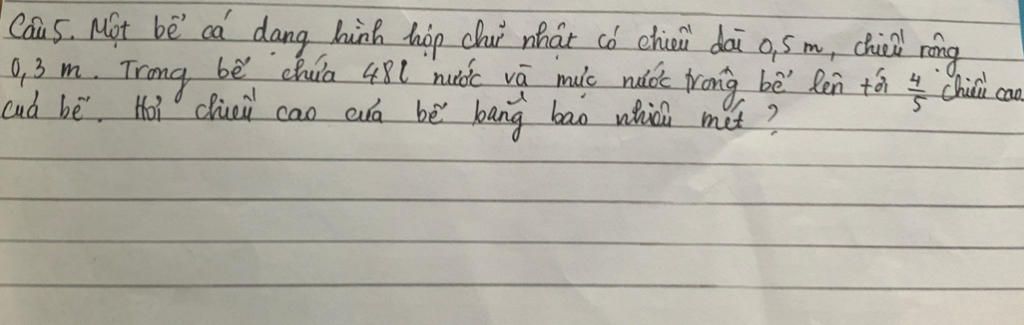 Câu 5. Một bể cá dạng hình hộp chữ nhật có chiều dài 0,5 m, chiều rộng
0,3 m. Trong bể chứa 48l nước và mức nước trong bể lên tới 4/5 chiều cao
của bể. Hỏi chiều cao của bể bằng bao nhiêu mét?